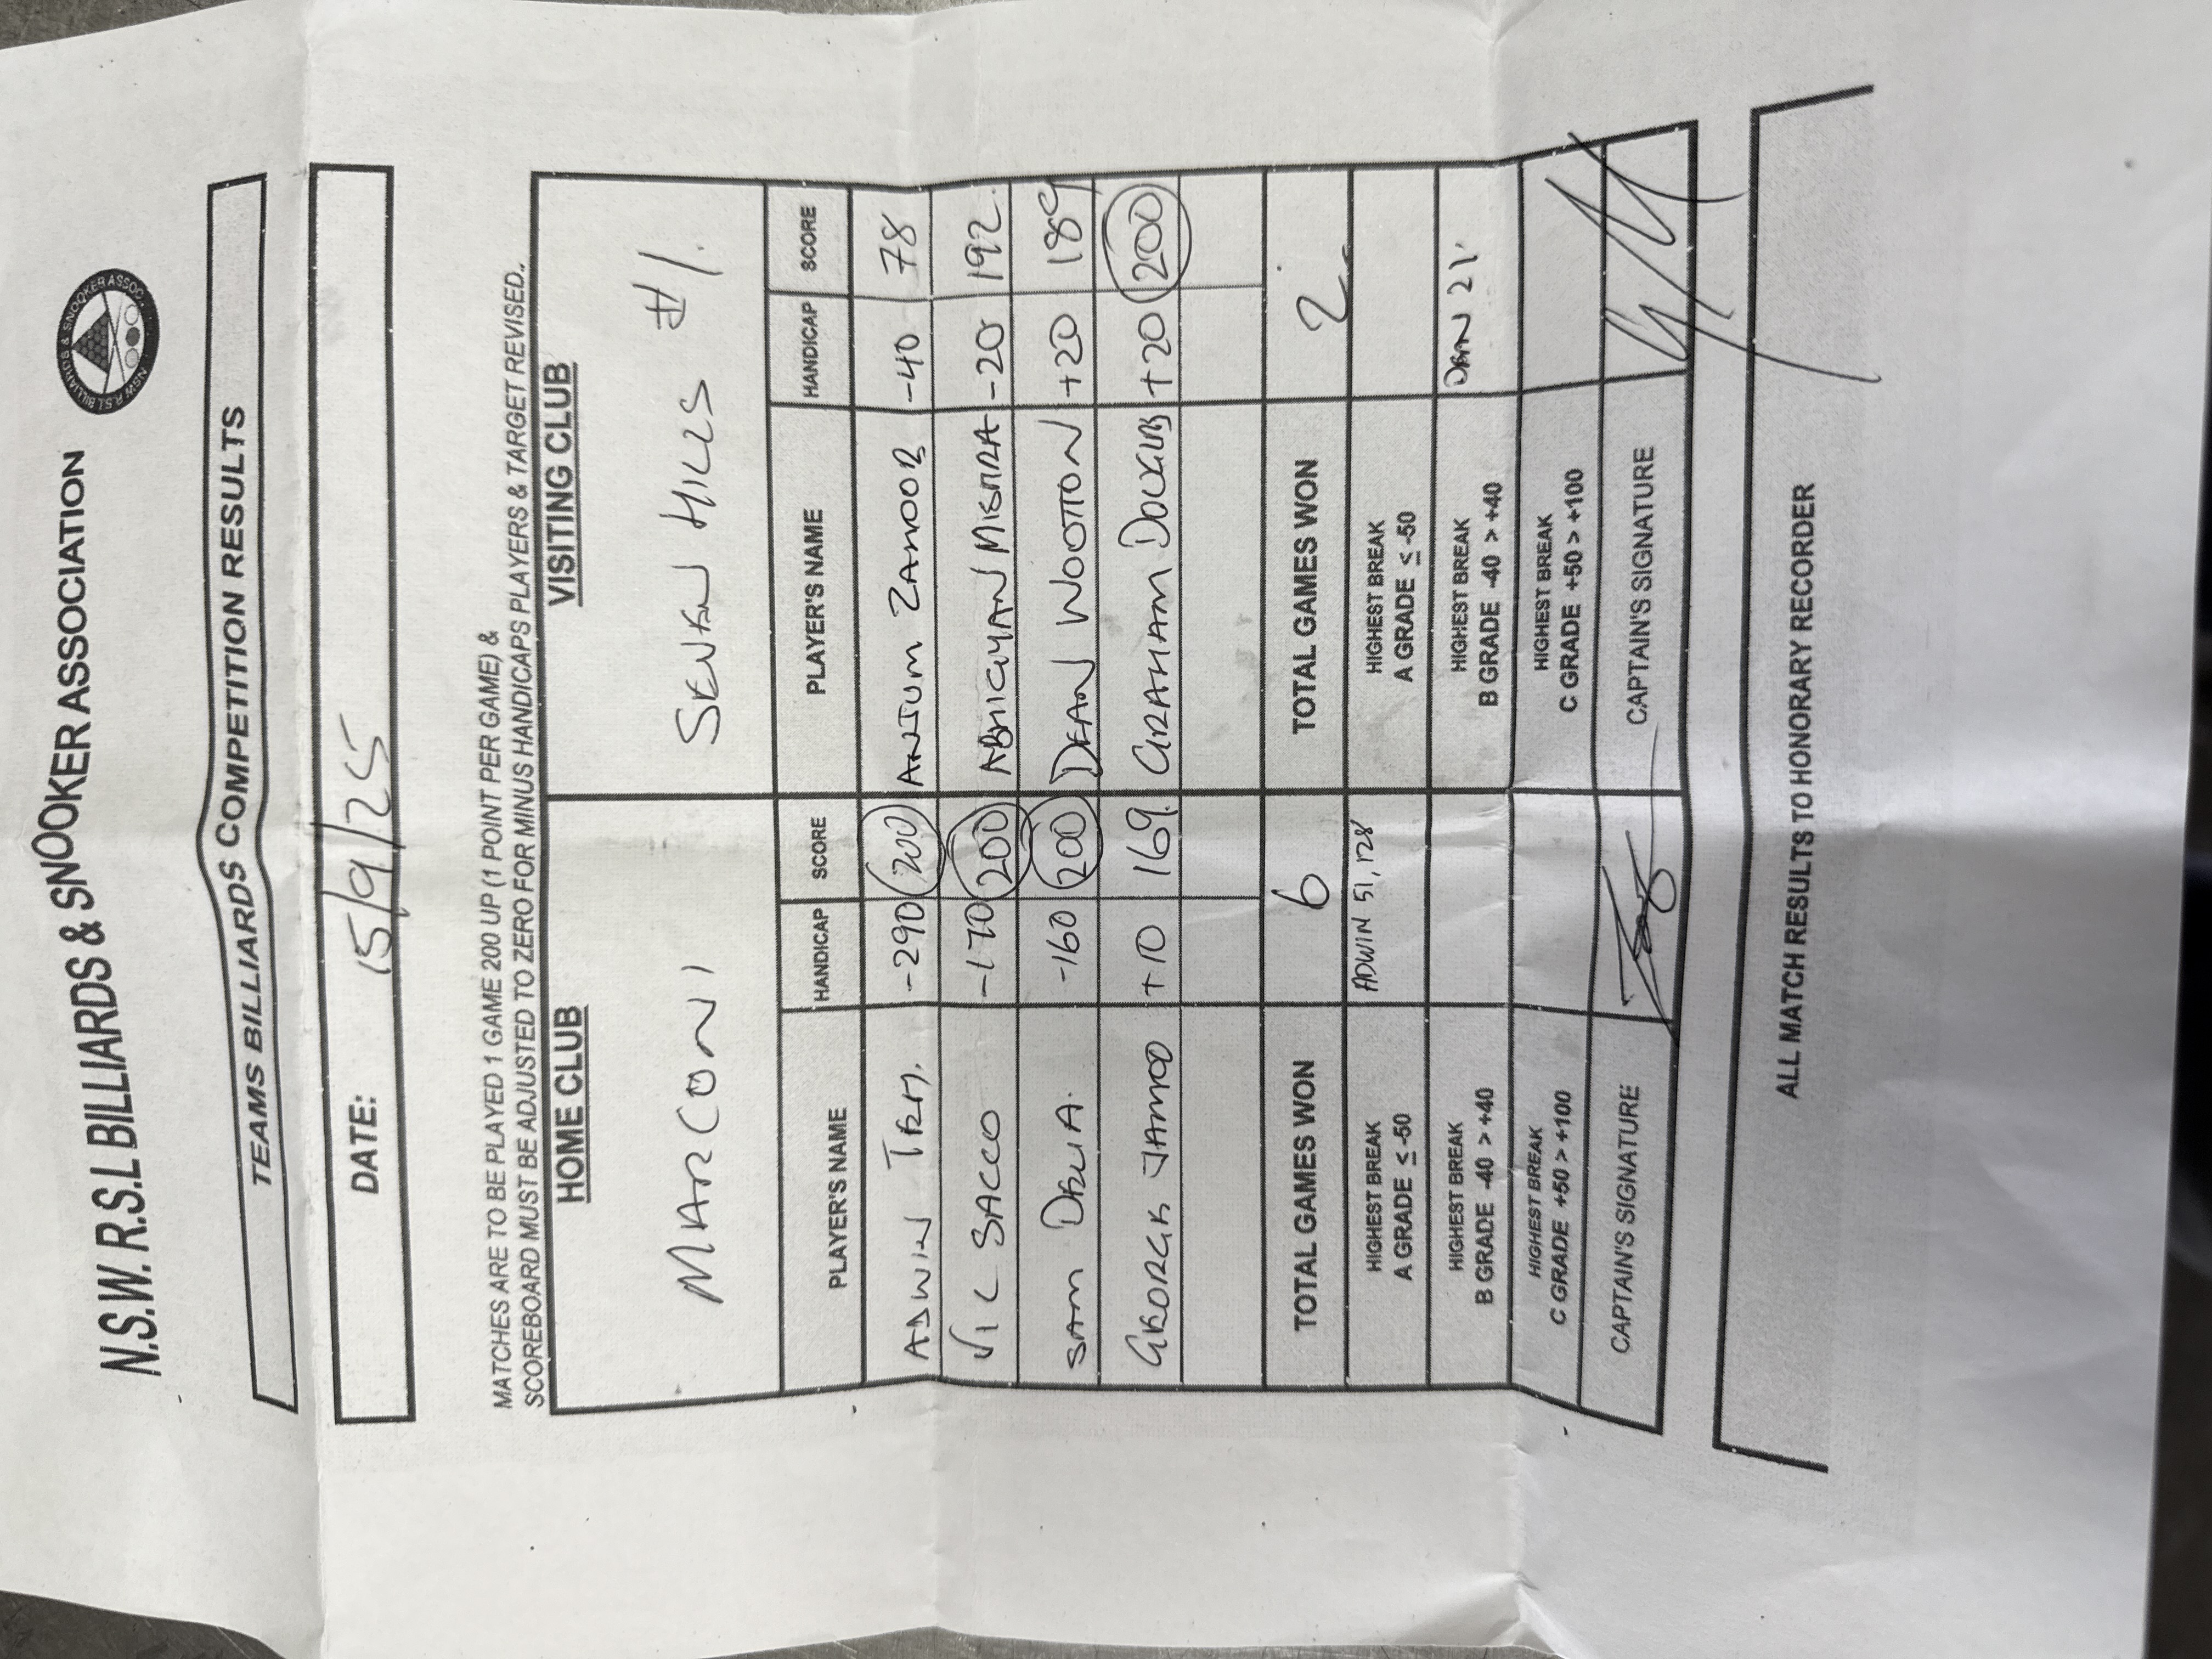 N.S.W. R.S.L BILLIARDS & SNOOKER ASSOCIATION
NSW R.S.L BILLIARDS & SNOOKER ASSOC.
TEAMS BILLIARDS COMPETITION RESULTS
DATE: 15/9/25
MATCHES ARE TO BE PLAYED 1 GAME 200 UP (1 POINT PER GAME) &
SCOREBOARD MUST BE ADJUSTED TO ZERO FOR MINUS HANDICAPS PLAYERS & TARGET REVISED.
HOME CLUB VISITING CLUB
MARCONI SEVEN HILLS #1.
PLAYER'S NAME HANDICAP SCORE PLAYER'S NAME HANDICAP SCORE
ADWIN -290 200 ANJUM ZAHOOR -40 78
VIC SACCO -170 200 ABHIGYAN MISHRA -20 192.
SAM DELIA. -160 200 DEAN WOOTTON +20 189
GEORGE +10 169. GRAHAM DOUGLAS +20 200
TOTAL GAMES WON 6 TOTAL GAMES WON 2
HIGHEST BREAK ADWIN 51, 128 HIGHEST BREAK
A GRADE ≤ -50 A GRADE ≤ -50
HIGHEST BREAK HIGHEST BREAK DEAN 21.
B GRADE -40 > +40 B GRADE -40 > +40
HIGHEST BREAK HIGHEST BREAK
C GRADE +50 > +100 C GRADE +50 > +100
CAPTAIN'S SIGNATURE CAPTAIN'S SIGNATURE
ALL MATCH RESULTS TO HONORARY RECORDER